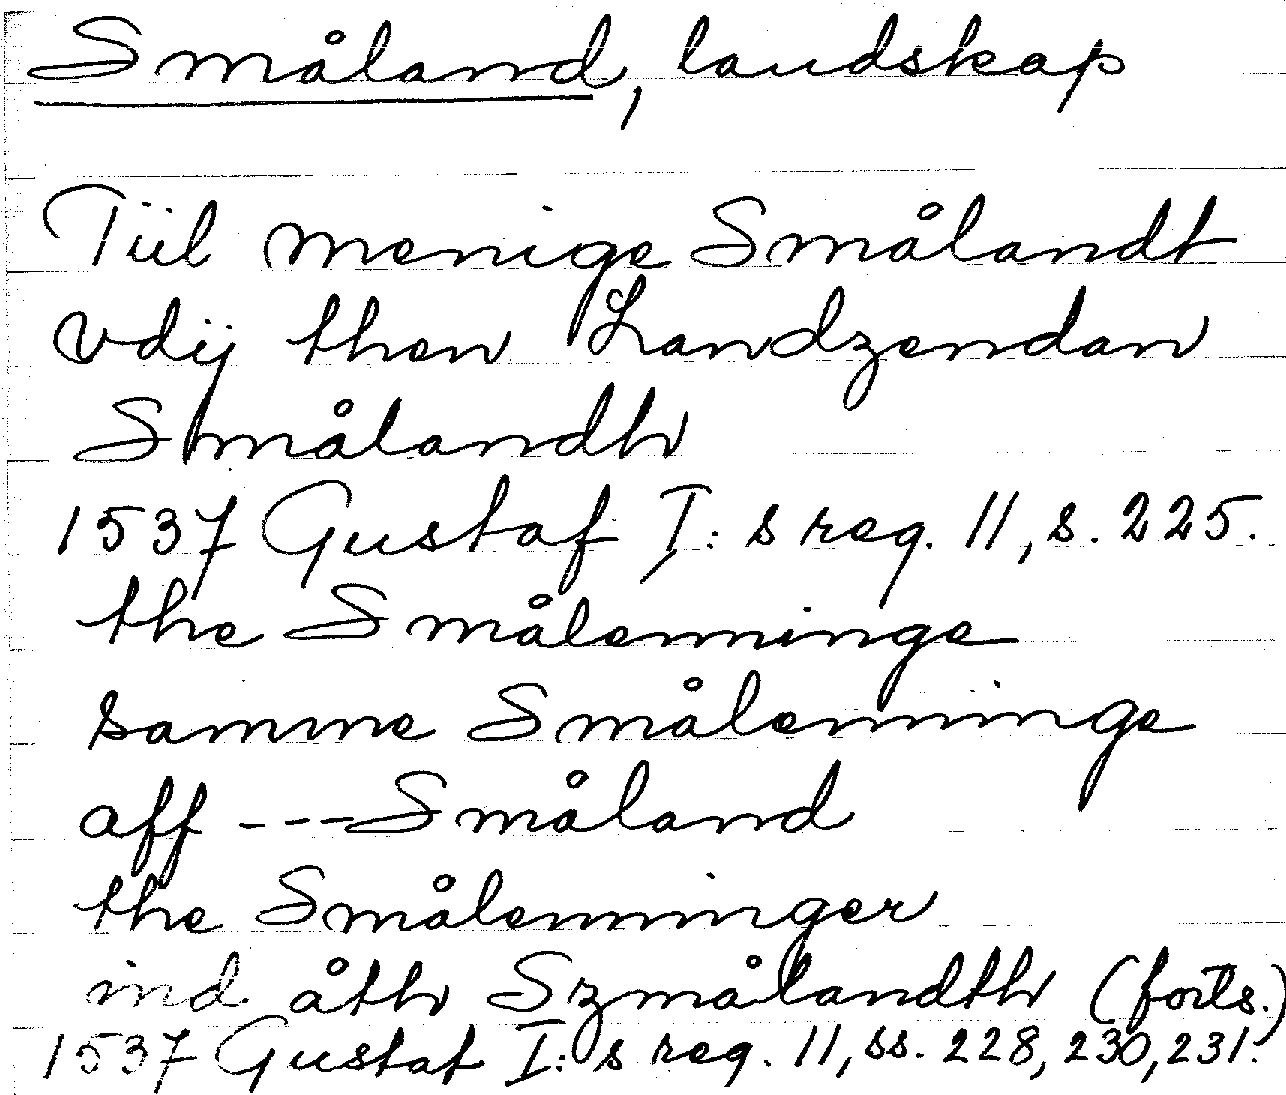 Småland, landskap
Tiil menige Smålandt
vdij then Landzendan
Smålandh
1537 Gustaf I:s reg. 11, s. 225.
the Smålenninge
samme Smålenninge
aff --- Småland
the Smålenninger
ind åth Szmålandth (forts.)
1537 Gustaf I:s reg. 11, ss. 228, 230, 231.